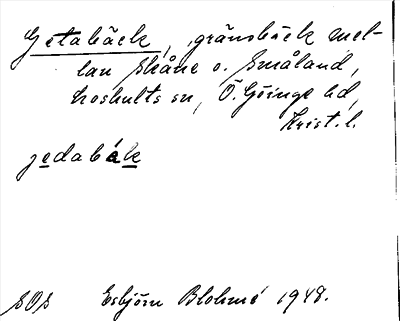 Getabäck, gränsbäck mel-
lan Skåne o. Småland,
Loshults sn, Ö. Göinge hd,
Krist. l.
jedabäk
SOS Esbjörn Blohmé 1948.